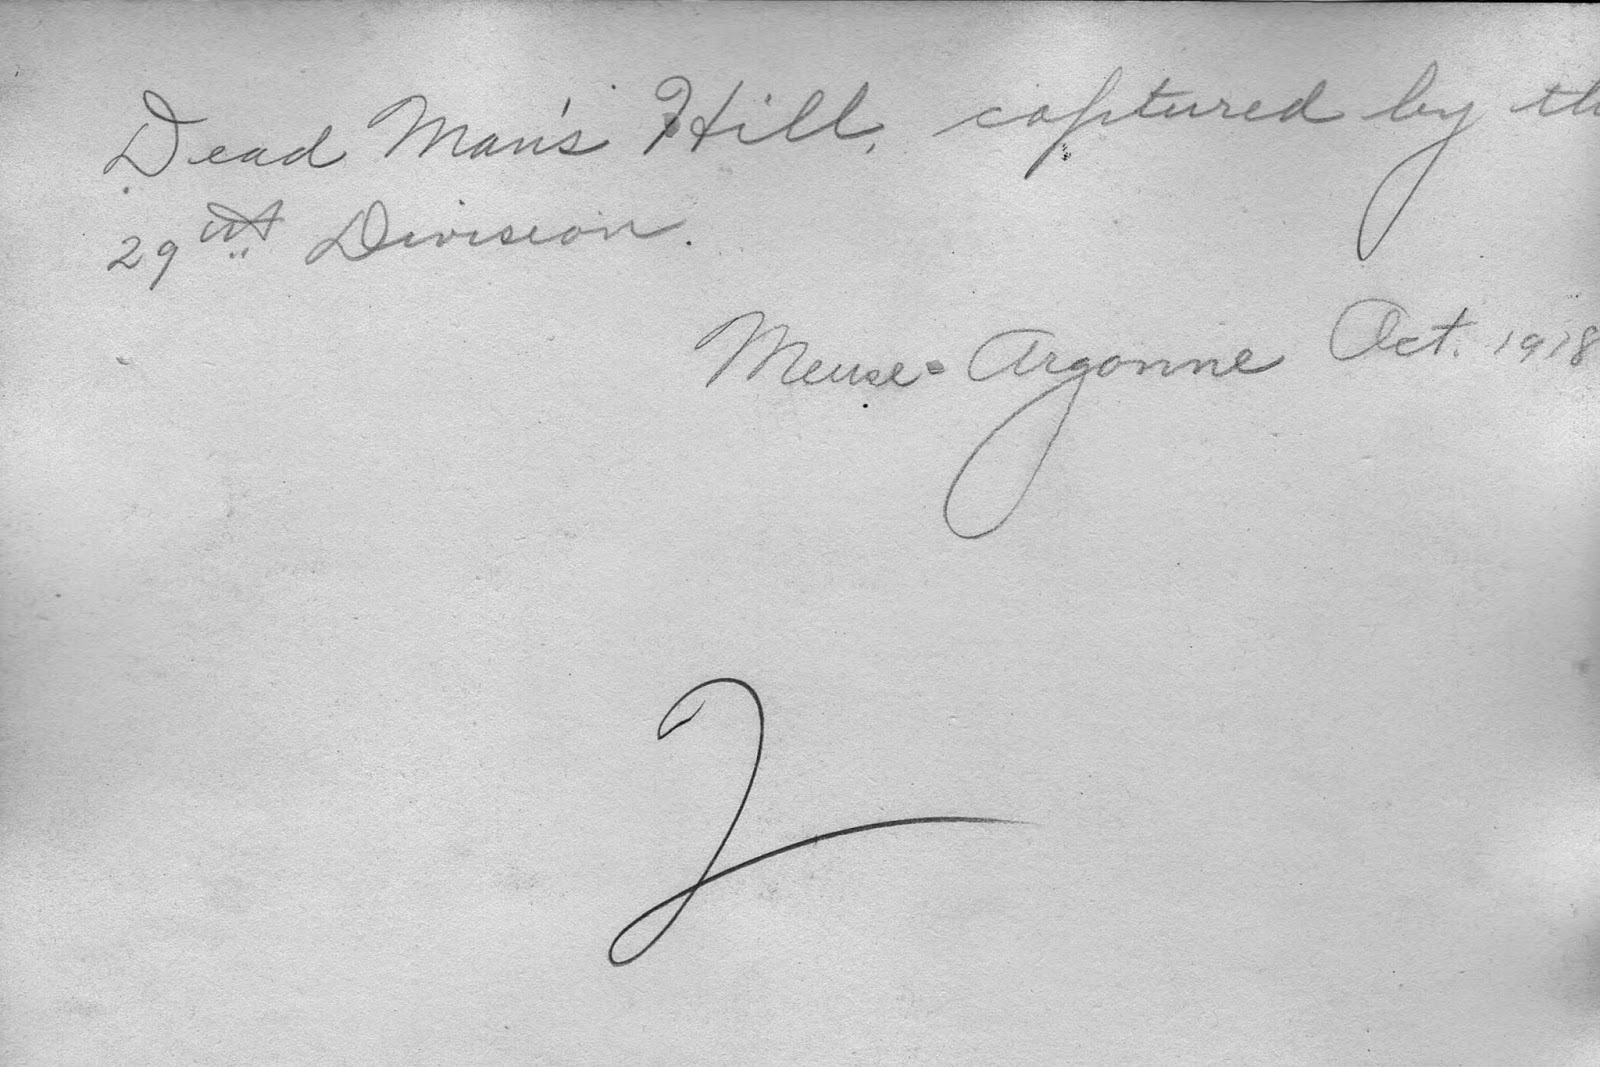 Dead Man's Hill, captured by th
29th Division.
Meuse-Argonne Oct. 1918
2